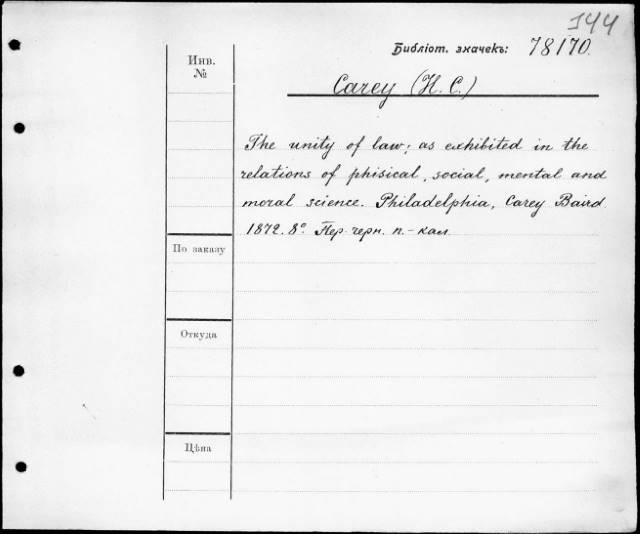 144
Библіот. значекъ: 78170.
Инв.
№
Carey (H. C.)
The unity of law; as exhibited in the
relations of phisical, social, mental and
moral science. Philadelphia, Carey Baird
1872. 8º. Пер. черн. п.-кал.
По заказу
Откуда
Цѣна